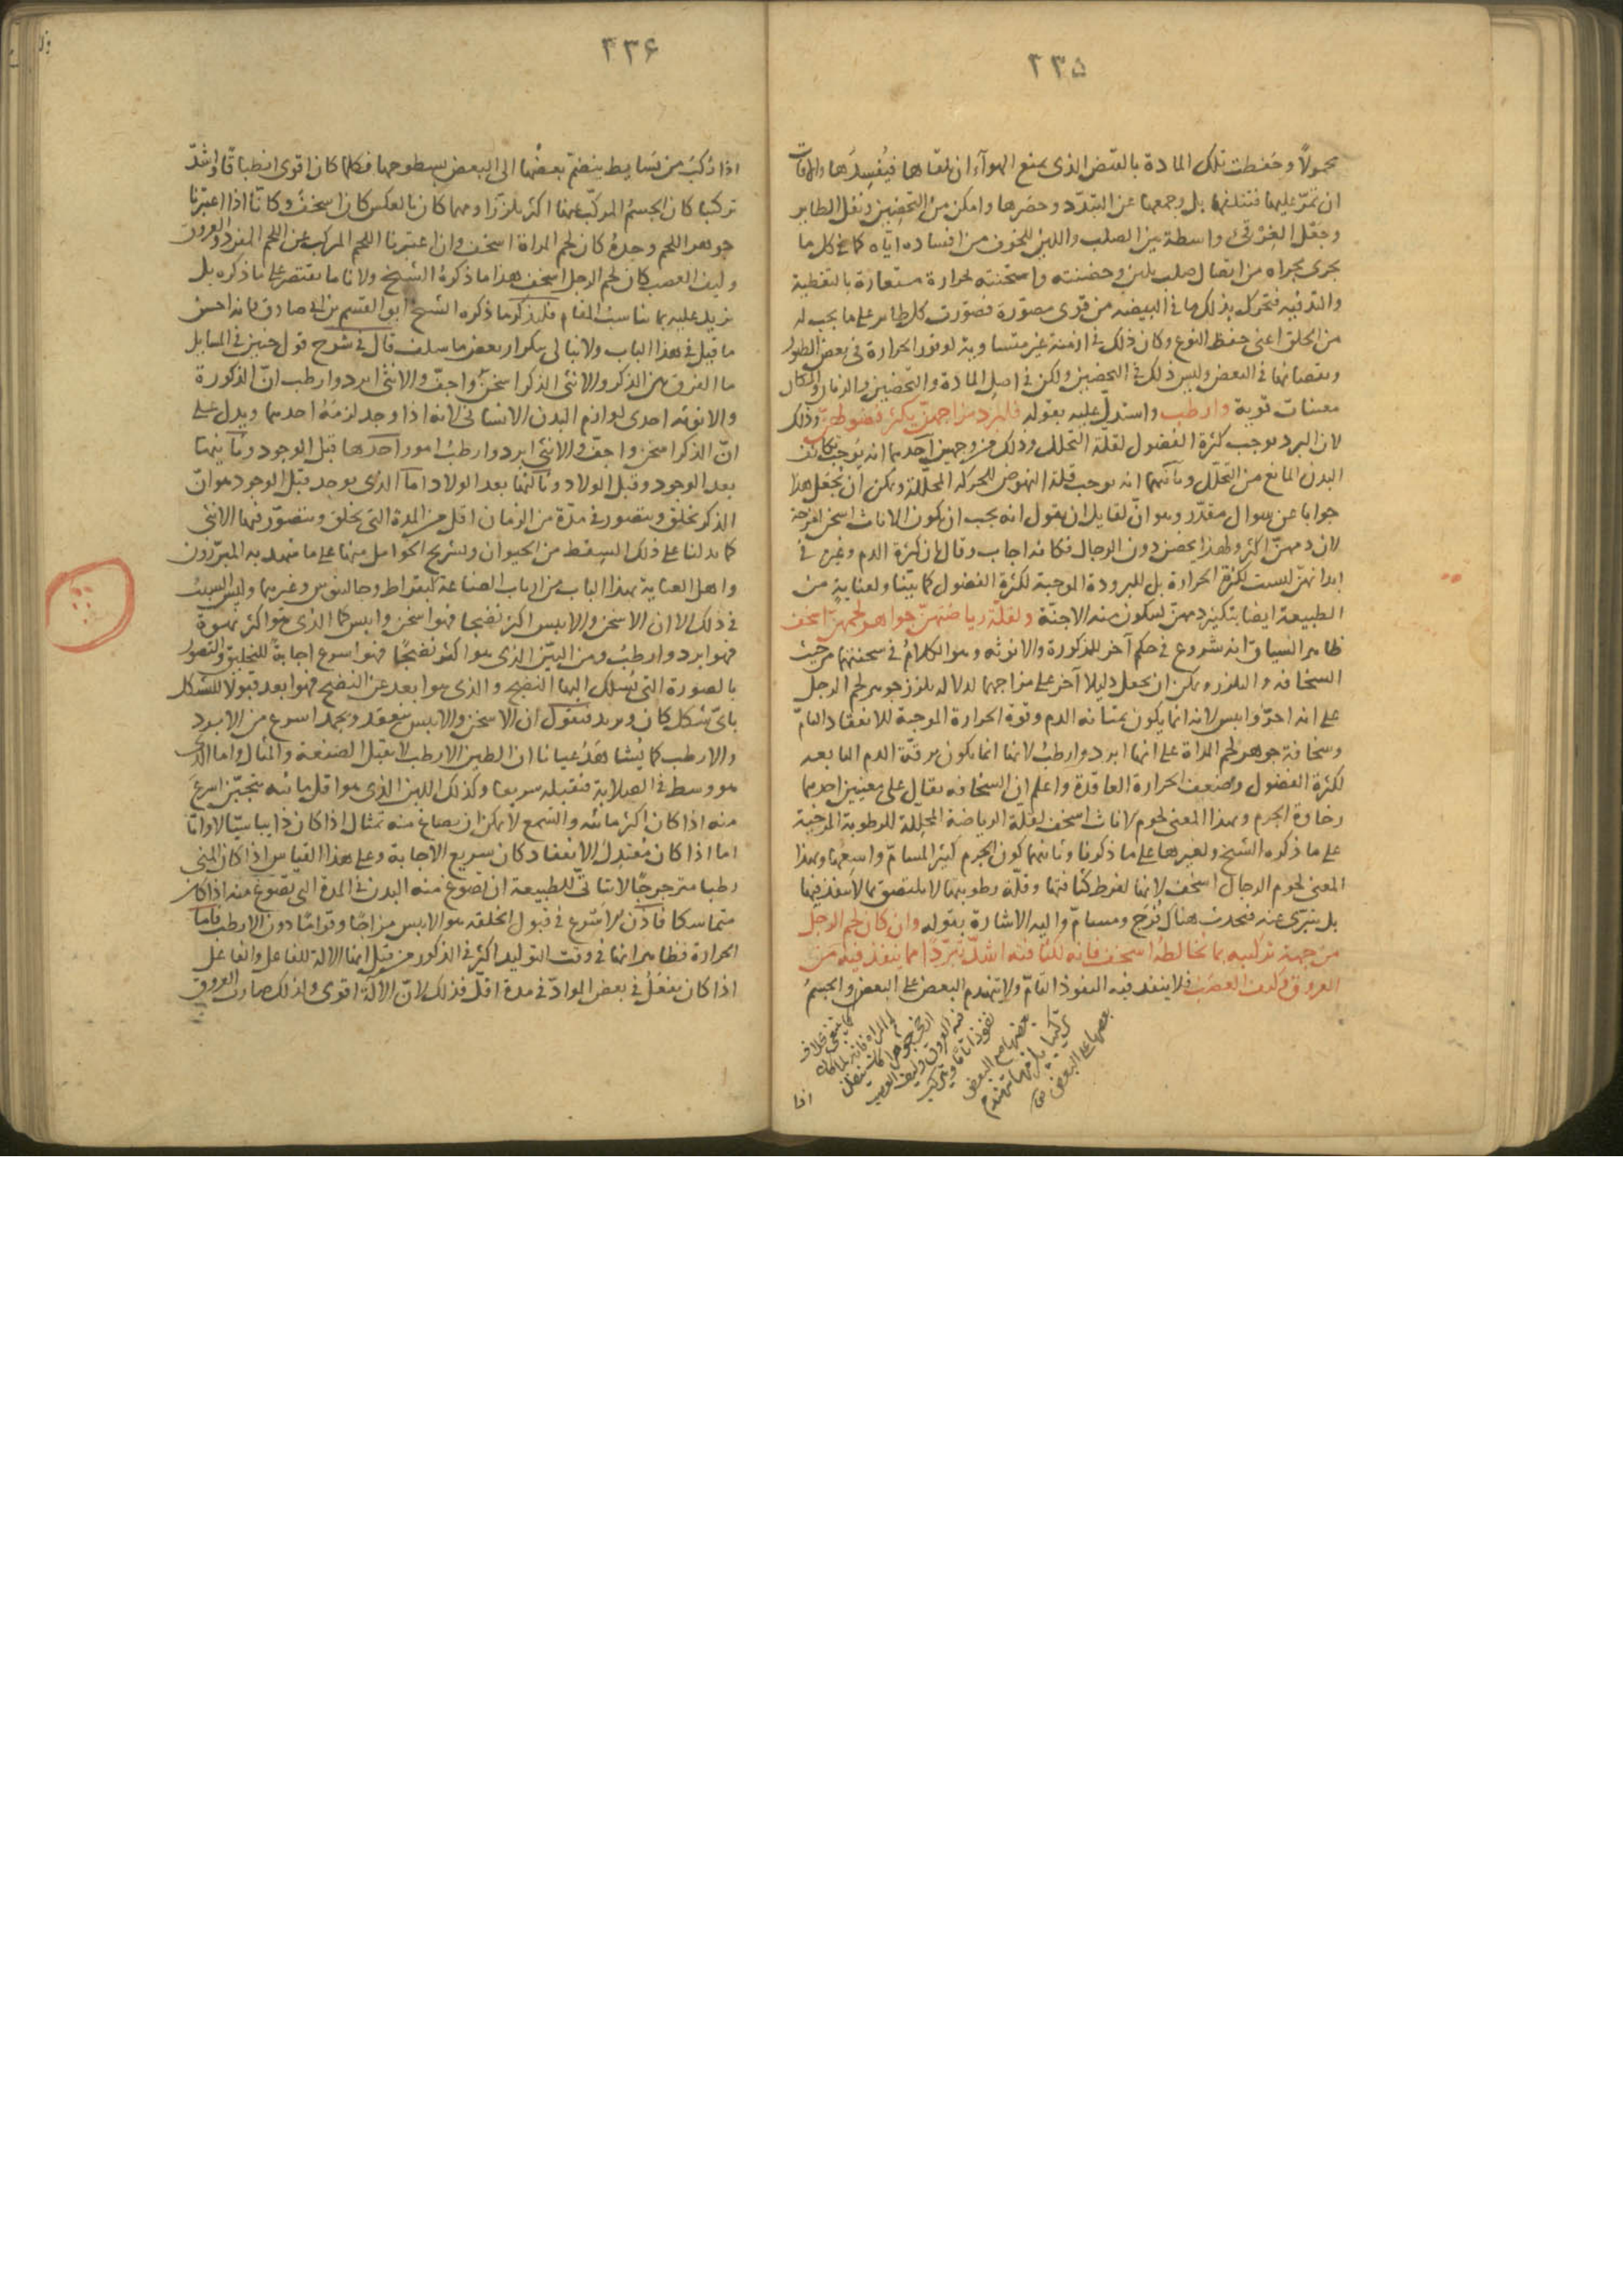 ٢٣۵
محمولاً وحفظت تلك المادة بالقيض الذى يمنع الهوآء ان يلقاها فيُفسِدَها والآفات
ان تمرّ عليها فتتلفها بل وجمعها عن التبدّد وحصرها وامكن من التحضين ونقل الطاير
وجعل الغرقئ واسطة بين الصلب واللين للخوف من افساده ايّاه كما فى كل ما
يجرى مجراه من اتصال صلب بلين وحضنته واسخنته بحرارة مستعارة بالتغطية
والتدفيه فتحرك بذلك ما فى البيضه من قوى مصوّرة فصوّرت كل طاير على ما يجب له
من الخلق اعنى حفظ النوع وكان ذلك فى ازمنة غير متساوية لوفور الحرارة فى بعض الطيور
ونقصانها فى البعض وليس ذلك فى التحضين ولكن فى اصل المادة والتحضين والزمان والمكان
معينات قوية وارطب واستدلّ عليه بقوله فلبرد مزاجهنّ يكثر فضولهنّ وذلك
لان البرد يوجب كثرة الفضول لقلة التحلل وذلك من وجهين احدهما انه يوجب تكاثف
البدن المانع من التحلّل وثانيهما انه يوجب قلة النهوض للحركه المحلّلة ويمكن ان يُجعل هذا
جوابا عن سوال مقدّر وهو انّ لقايل ان يقول انه يجب ان يكون الاناث اسخن امزجة
لان دمهنّ اكثر ولهذا يحضن دون الرجال فكانه اجاب وقال ان كثرة الدم وغيره فى
ابدانهنّ ليست لكثرة الحرارة بل للبرودة الموجبة لكثرة الفضول كما بيّنا ولعنايةٍ من
الطبيعة ايضا بتكثير دمهنّ ليتكون منه الاجنّة ولقلّة رياضتهنّ جواهر لحمهنّ اسخف
ظاهر السياق انه شروع فى حكم آخر للذكورة والانوثه وهو الكلام فى سحنتهما من حيث
السخافه والتلزز ويمكن ان يجعل دليلا آخر على مزاجهما لدلاله تلزز جوهر لحم الرجل
على انه احرّ وايبس لانه انما يكون بمتانه الدم وقوة الحرارة الموجبة للانعقاد التامّ
وسخافة جوهر لحم المراة على انها ابرد وارطبُ لانها انما يكون برقّة الدم التابعه
لكثرة الفضول وضعف الحرارة العاقدة واعلم ان السخافه يقال على معنيين احدهما
رخاوة الجرم وبهذا المعنى لحوم الاناث اسخف لقلة الرياضة المحللة للرطوبة المرخية
على ما ذكره الشيخ ولغيرها على ما ذكرنا وثانيهما كون الجرم كثير المسامّ واسعها وبهذا
المعنى لحوم الرجال اسخف لانها لفرط كثافتها وقلّة رطوبتها لا يلتصق بما لا ينفذ فيها
بل يتبرّى عنه فتحدث هناك فُرَج ومسامّ واليه الاشارة بقوله وان كان لحم الرجل
من جهة تركيبه بما يخالطه اسخف فانه لكثافته اشدّ تبرّدًا مما ينفذ فيه من
العروق وليف العصَب فلا ينفذ فيه النفوذ التامّ ولا يتهندم البعض على البعض والجسمُ
اذا
٢٣۶
اذا رُكّبَ من بسايط ينضمّ بعضُها الى البعض بسطوحها فكلما كان اقوى انطباقًا واشدّ
تركبا كان الجسمُ المركّب عنها اكثر تلززا ومهما كان بالعكس كان اسخف وكانّا اذا اعتبرنا
جوهر اللحم وحدهُ كان لحم المراة اسخف وان اعتبرنا اللحم المركب عن اللحم المفرد والعروق
وليف العصب كان لحم الرجل اسخف هذا ما ذكرهُ الشيخ ولانا ما نقتصر على ما ذكره بل
نزيد عليه بما يناسب المقام فلنذكر ما ذكره الشيخ ابو القسم بن ابى صادق فانه احسن
ما قيل فى هذا الباب ولا نبالى بتكرار بعض ما سلف قال فى شرح قول حنين فى المسايل
ما الفرق بين الذكر والانثى الذكر اسخن واجفّ والانثى ابرد وارطب انّ الذكورة
والانوثه احدى لوازم البدن الانسانى لانه اذا وجد لزمَهُ احدهما ويدل على
انّ الذكر اسخن واجفّ والانثى ابرد وارطبُ امور احدها قبل الوجود وثانيها
بعد الوجود وقبل الولاد وثالثها بعد الولاد اما الذى يوجد قبل الوجود هو انّ
الذكر يخلق ويتصور فى مدّة من الزمان اقل من المدة التى يخلق ويتصوّر فيها الانثى
كما يدلنا على ذلك السِقط من الحيوان وتشريح الحوامل منها على ما شهد به المبرّزون
واهل العناية بهذا الباب من ارباب الصناعة كبقراط وجالينوس وغيرهما وليس السبب
فى ذلك الا ان الاسخن والايبس اكثر نضجا فهو اسخن وايبس كما الذى هو اكثر نهوة
فهو ابرد وارطبُ ومن البيّن الذى هو اكثر نضجًا فهو اسرع اجابةً للتخليق والتصوّر
بالصورة التى يُسلك اليها النضج والذى هو ابعد عن النضج فهو ابعد قبولا للشكل
باىّ شكل كان ونريد فنقول ان الاسخن والايبس ينعقد ويجمد اسرع من الابرد
والارطب كما يُشاهَدُ عيانا ان الطين الارطب لا يقبل الصنعة والمثال واما الذى
هو وسط فى الصلابة فيقبله سريعا وكذلك اللبن الذى هو اقل مائيه يتجبّن اسرعَ
منه اذا كان اكثر مائيه والشمع لا يمكن ان يصاغ منه تمثال اذا كان ذايبا سيّالا وانّا
اما اذا كان مُعتدِل الانعقاد كان سريع الاجابة وعلى هذا القياس اذا كان المنى
رطبا مترجرجًا لا يتأتّى للطبيعة ان تصوغ منه البدن فى المدة التى تصوغ منه اذا كان
متماسكا فاذن الاسرع فى قبول الخلقه هو الايبس مزاجًا وقوامًا دون الارطب فاما
الحرارة فظاهر انها فى وقت التوليد اكثر فى الذكور من قبل انها الالة للفاعل والفاعل
اذا كان يفعلُ فى بعض الموادّ فى مدة اقلّ فذلك لانّ الالة اقوى ولذلك صارت العروق